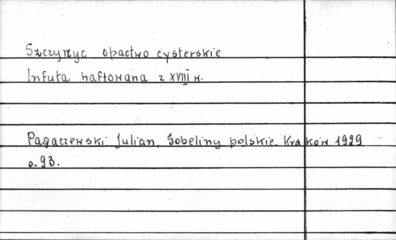 Szczyrzyc opactwo cysterskie
Infuła haftowana z XVIII w.
Pagaczewski Julian, Gobeliny polskie. Kraków 1929
s. 93.